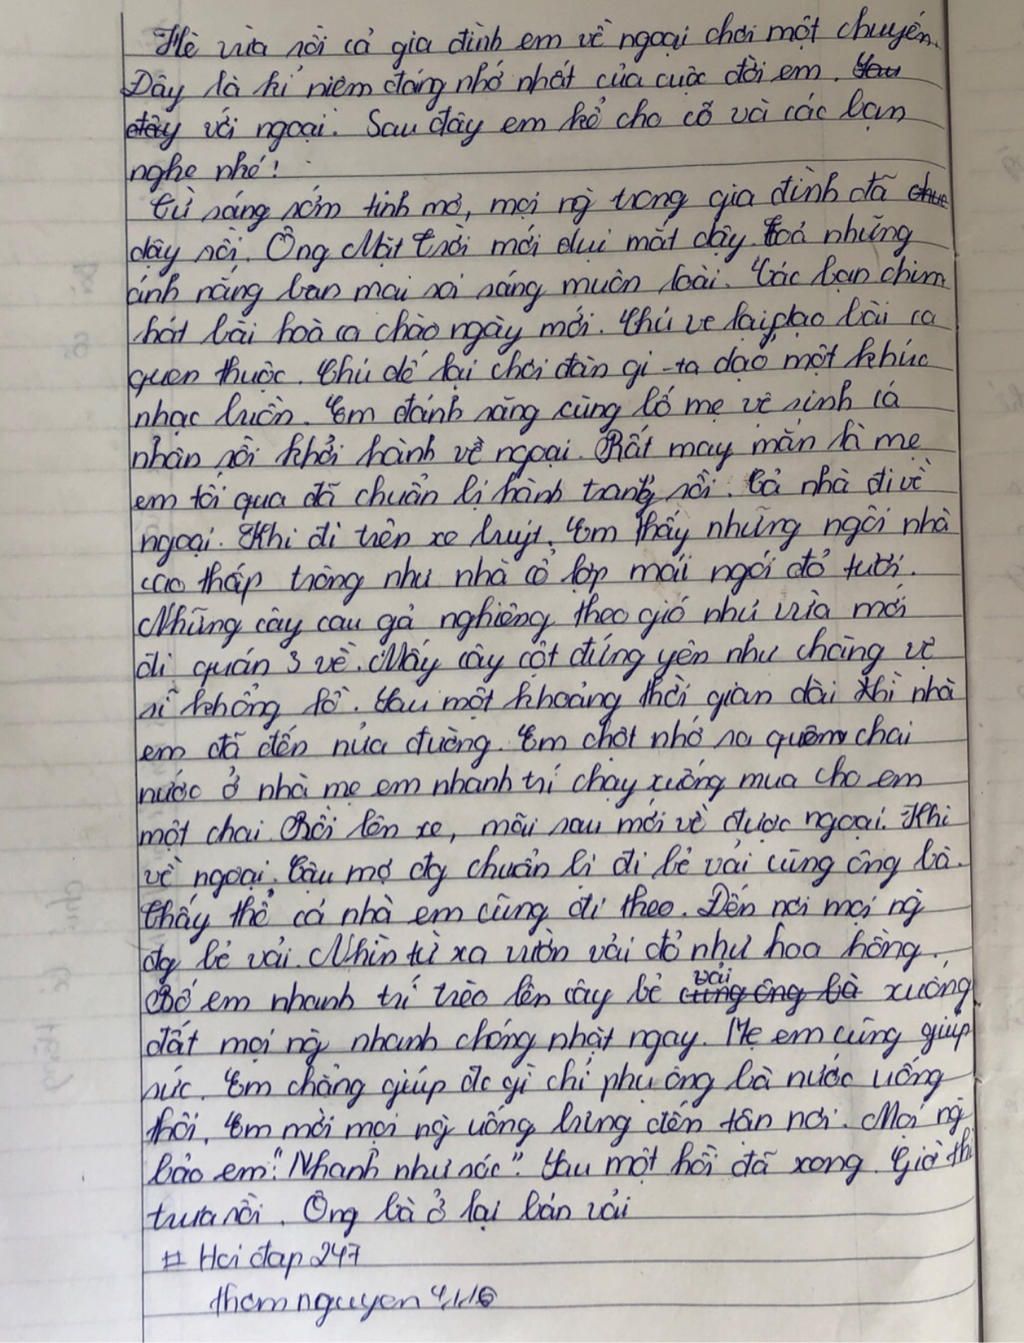 Hè vừa rồi cả gia đình em về ngoại chơi một chuyến.
Đây là kỉ niệm đáng nhớ nhất của cuộc đời em. Sau
đây với ngoại. Sau đây em kể cho cô và các bạn
nghe nhé!
Từ sáng sớm tinh mơ, mọi ng trong gia đình đã
dậy rồi. Ông Mặt Trời mới dụi mắt dậy toả những
ánh nắng ban mai soi sáng muôn loài. Các bạn chim
hát bài hoà ca chào ngày mới. Chú ve lại dạo bài ca
quen thuộc. Chú dế lại chơi đàn gi-ta dạo một khúc
nhạc luôn. Em đánh răng cùng bố mẹ vệ sinh cá
nhân rồi khởi hành về ngoại. Rất may mắn là mẹ
em tối qua đã chuẩn bị hành trang rồi. Cả nhà đi về
ngoại. Khi đi trên xe buýt. Em thấy những ngôi nhà
cao thấp trông như nhà cổ lợp mái ngói đỏ tươi.
Những cây cau gả nghiêng theo gió như vừa mới
đi quán 3 về. Mấy cây cột đứng yên như chàng vệ
sĩ khổng lồ. Sau một khoảng thời gian dài thì nhà
em đã đến nửa đường. Em chợt nhớ ra quên chai
nước ở nhà mẹ em nhanh trí chạy xuống mua cho em
một chai. Rồi lên xe, mãi sau mới về được ngoại. Khi
về ngoại. Cậu mợ đg chuẩn bị đi bẻ vải cùng ông bà.
Thấy thế, cả nhà em cũng đi theo. Đến nơi mọi ng
đg bẻ vải. Nhìn từ xa vườn vải đỏ như hoa hồng.
Bố em nhanh trí trèo lên cây bẻ vải cùng ông bà xuống
đất mọi ng nhanh chóng nhặt ngay. Mẹ em cũng giúp
sức. Em chẳng giúp đc gì chỉ phụ ông bà nước uống
thôi. Em mời mọi ng uống bưng đến tận nơi. Mọi ng
bảo em: "Nhanh như sóc". Sau một hồi đã xong. Giờ thì
trưa rồi. Ông bà ở lại bán vải
# Hoi đap 247
thamnguyen